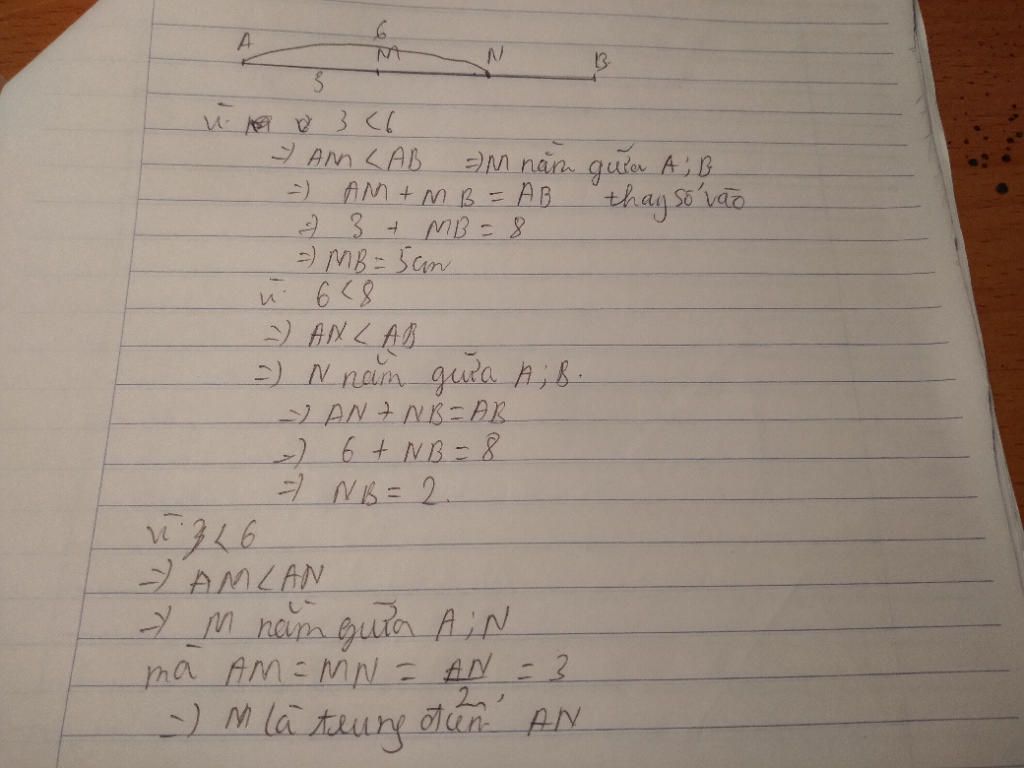 6
A M N B
3
vì 3 < 6
=> AM < AB => M nằm giữa A; B
=> AM + MB = AB thay số vào
=> 3 + MB = 8
=> MB = 5cm
vì 6 < 8
=> AN < AB
=> N nằm giữa A; B.
=> AN + NB = AB
=> 6 + NB = 8
=> NB = 2.
vì 3 < 6
=> AM < AN
=> M nằm giữa A; N
mà AM = MN = AN/2 = 3
=> M là trung điểm AN